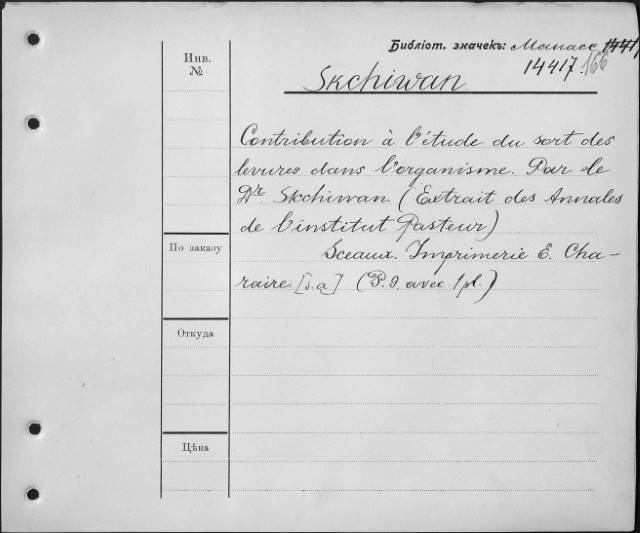 Библіот. значекъ: Манасе 1441
14417 166
Инв.
№
Skchiwan
Contribution à l'étude du sort des
levures dans l'organisme. Par le
Dr. Skchiwan (Extrait des Annales
de l'institut Pasteur)
По заказу
Sceaux. Imprimerie E. Cha-
raire [s.a] (P. 9. avec 1 pl.)
Откуда
Цѣна